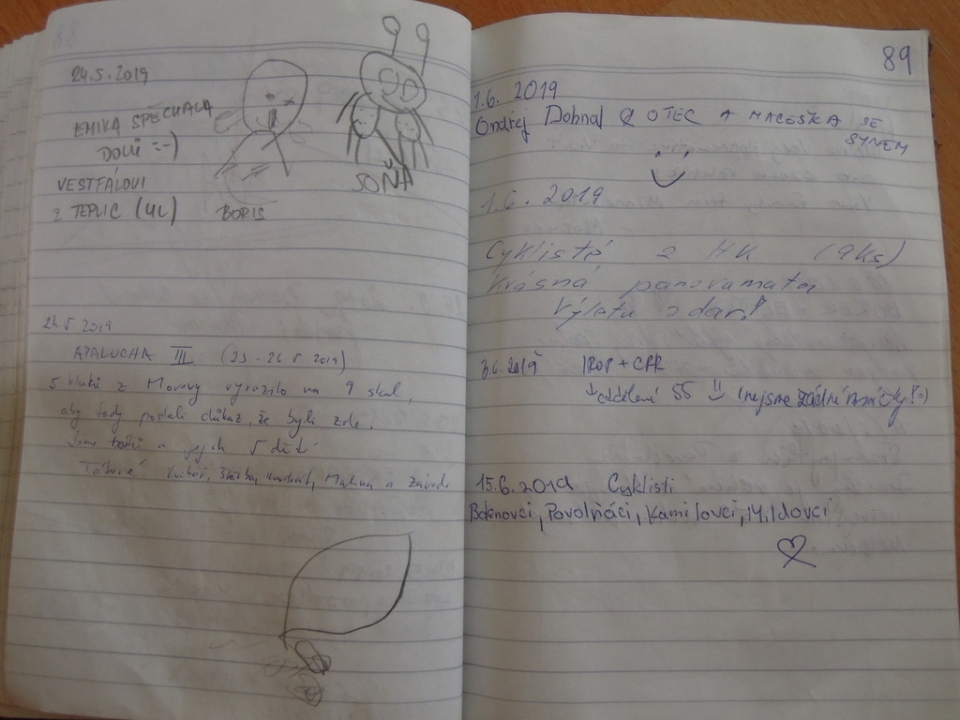 88
24.5.2019
EMIKA SPĚCHALA
DOLŮ :-)
VESTFÁLOVI
Z TEPLIC (UL)
BORIS
SOŇA
24.5 2019
APALUCHA III (23-26 5 2019)
5 kluků z Moravy vyrazilo na 9 skal,
aby tady podali důkaz, že byli zde.
Jsme a jejich 5 dětí
Tátové
89
1.6. 2019
Ondřej Dohnal & OTEC A MACEŠKA SE
SYNEM
1.6. 2019
Cyklisté z HK (9ks)
Krásná panoramata
Výletu zdar!
3.6.2019 IROP + CPR
oddělení 55 (nejsme žádné :-)
15.6.2019 Cyklisti
Povolňáci, Kamilovci, Mildovci